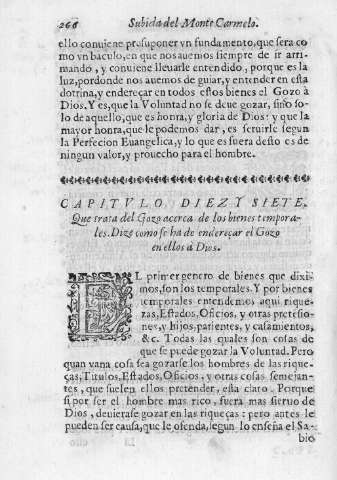 266 Subida del Monte Carmelo.
ello conuiene presuponer vn fundamento, que sera co
mo vn baculo, en que nos auemos siempre de ir arri
mando, y conuiene lleuarle entendido, porque es la
luz, pordonde nos auemos de guiar, y entender en esta
dotrina, y endereçar en todos estos bienes el Gozo à
Dios. Y es, que la Voluntad no se deue gozar, sino so-
lo de aquello, que es honra, y gloria de Dios: y que la
mayor honra, que le podemos dar, es seruirle segun
la Perfecion Euangelica, y lo que es fuera desto es de
ningun valor, y prouecho para el hombre.
CAPITVLO DIEZ Y SIETE.
Que trata del Gozo acerca de los bienes tempora-
les. Dize como se ha de endereçar el Gozo
en ellos à Dios.
EL primer genero de bienes que dixi
mos, son los temporales. Y por bienes
temporales entendemos aqui rique
zas, Estados, Oficios, y otras pretensio-
nes, y hijos, parientes, y casamientos,
&c. Todas las quales son cosas de
que se puede gozar la Voluntad. Pero
quan vana cosa sea gozarse los hombres de las rique-
ças, Titulos, Estados, Oficios, y otras cosas semejan-
tes, que suelen ellos pretender, esta claro. Porque
si por ser el hombre mas rico, fuera mas sieruo de
Dios, deuierase gozar en las riqueças: pero antes le
pueden ser causa, que le ofenda, segun lo enseña el Sa-
bio